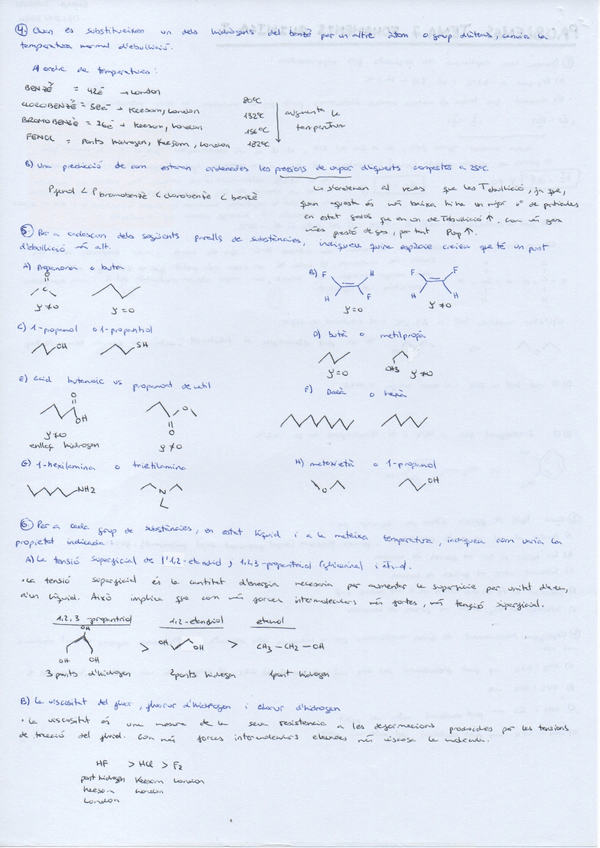 4. Quan es substitueixen un dels hidrògens del benzè per un altre àtom o grup d'àtoms, canvia la
temperatura normal d'ebullició.
A) ordre de temperatures:
BENZÈ = 42e⁻ → London 80ºC
CLOROBENZÈ = 58e⁻ → Keesom, London 132ºC
BROMOBENZÈ = 76e⁻ → Keesom, London 156ºC
FENOL = Ponts hidrogen, Keesom, London 182ºC
augmenta la
temperatura
B) Una predicció de com estaran ordenades les pressions de vapor d'aquests compostos a 25ºC
P fenol < P bromobenzè < clorobenzè < benzè
S'ordenen al revés que les T ebullició, ja que,
quan aquesta és més baixa hi ha un major nº de partícules
en estat gasós que en un de T ebullició ↑. Com més gas
més pressió de gas, per tant Pvap ↑.
5. Per a cadascun dels següents parells de substàncies, indiqueu quina espècie creieu que té un punt
d'ebullició més alt.
A) Propanona o butà
O
C
μ≠0 μ=0
B) F H F F
H F H H
μ=0 μ≠0
C) 1-propanol o 1-propantiol
OH SH
D) butà o metilpropà
CH3
μ=0 μ≠0
E) Àcid butanoic vs propanoat de metil
O
OH O
O
μ≠0 μ≠0
enllaç hidrogen
F) Decà o hexà
G) 1-hexilamina o trietilamina
NH2 N
H) metoxietà o 1-propanol
O OH
6. Per a cada grup de substàncies, en estat líquid i a la mateixa temperatura, indiqueu com varia la
propietat indicada:
A) La tensió superficial de l'1,2-etandiol, 1,2,3-propantriol (glicerina) i etanol.
· La tensió superficial és la quantitat d'energia necessària per augmentar la superfície per unitat d'àrea,
d'un líquid. Això implica que com més forces intermoleculars més fortes, més tensió superficial.
1,2,3-propantriol 1,2-etandiol etanol
OH
OH OH > OH OH > CH3 - CH2 - OH
3 ponts d'hidrogen 2 ponts hidrogen 1 pont hidrogen
B) La viscositat del fluor, fluorur d'hidrogen i clorur d'hidrogen
· La viscositat és una mesura de la seva resistencia a les deformacions produïdes per les tensions
de tracció del fluid. Com més forces intermoleculars més viscosa la molècula.
HF > HCl > F2
pont hidrogen Keesom London
Keesom London
London